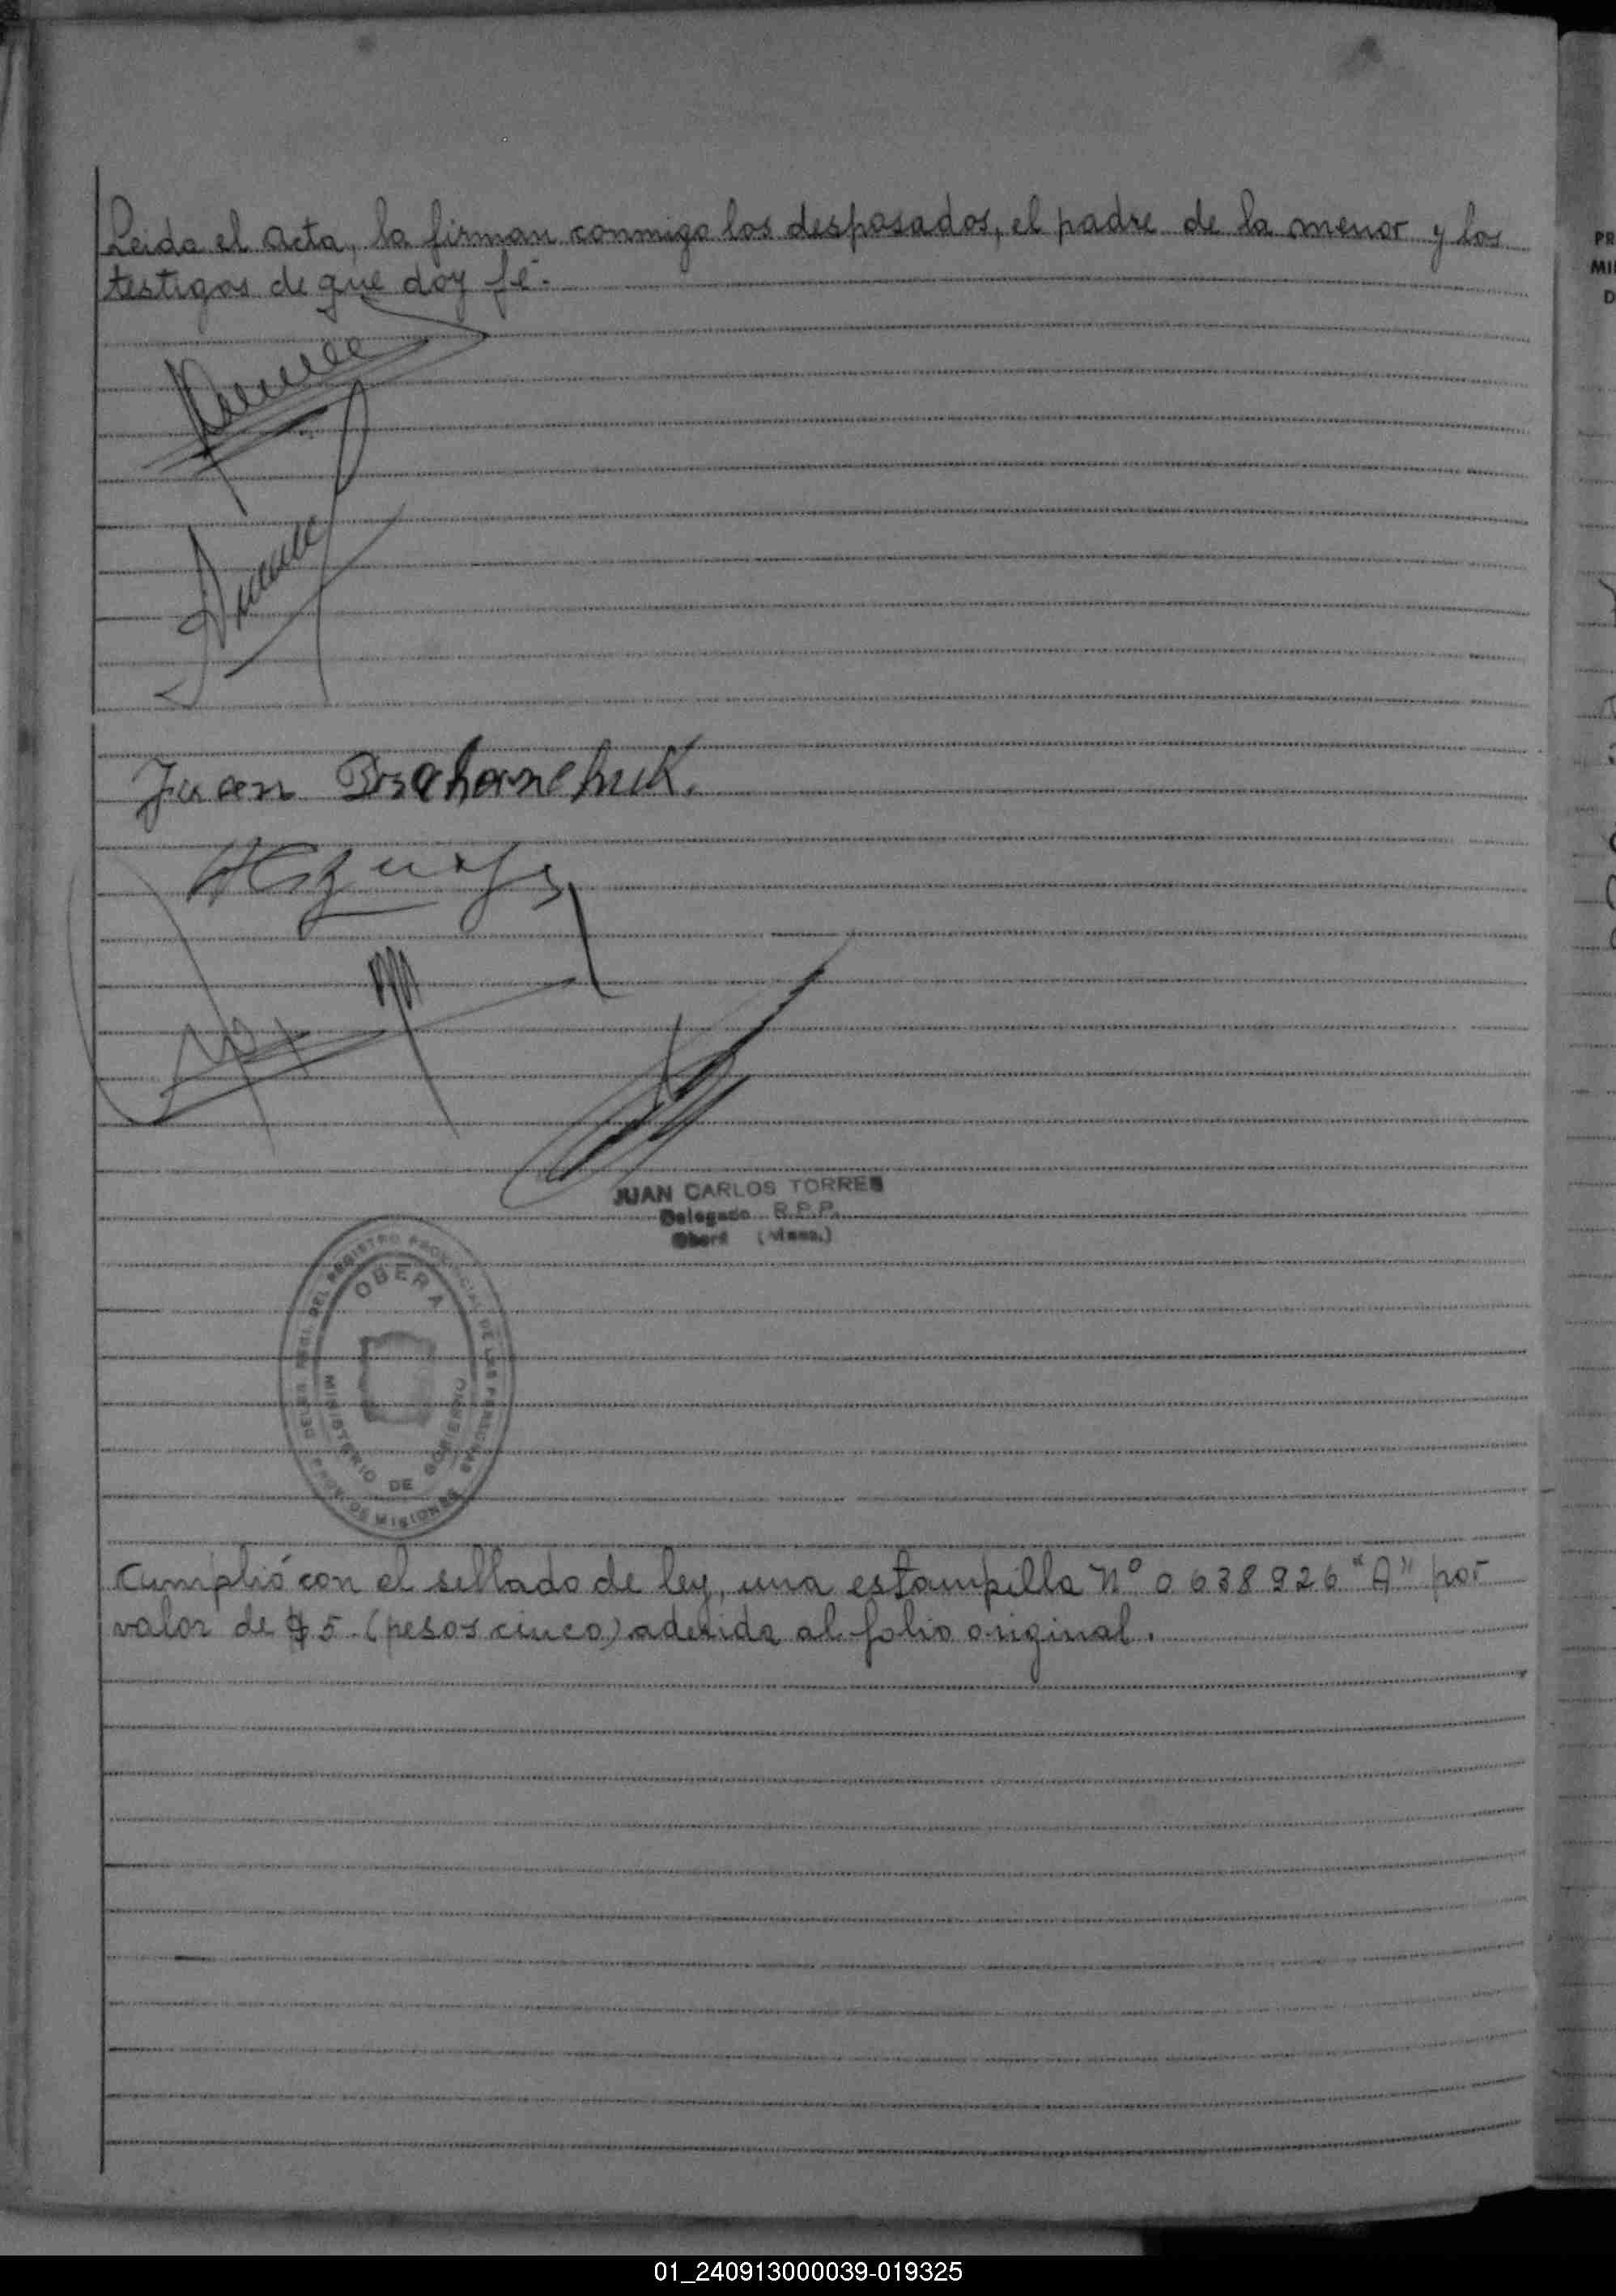 Leida el acta, la firman conmigo los desposados, el padre de la menor y los
testigos de que doy fé.
Juan
JUAN CARLOS TORRES
Delegado R.P.P.
Oberá (Mnes.)
DEL REGISTRO PROVINCIAL DE LAS PERSONAS
OBERA
MINISTERIO DE GOBIERNO
PROV. DE MISIONES
Cumplió con el sellado de ley, una estampilla Nº 0638926 "A" por
valor de $ 5.- (pesos cinco) aderida al folio original.
PR
MI
D
01_240913000039-019325